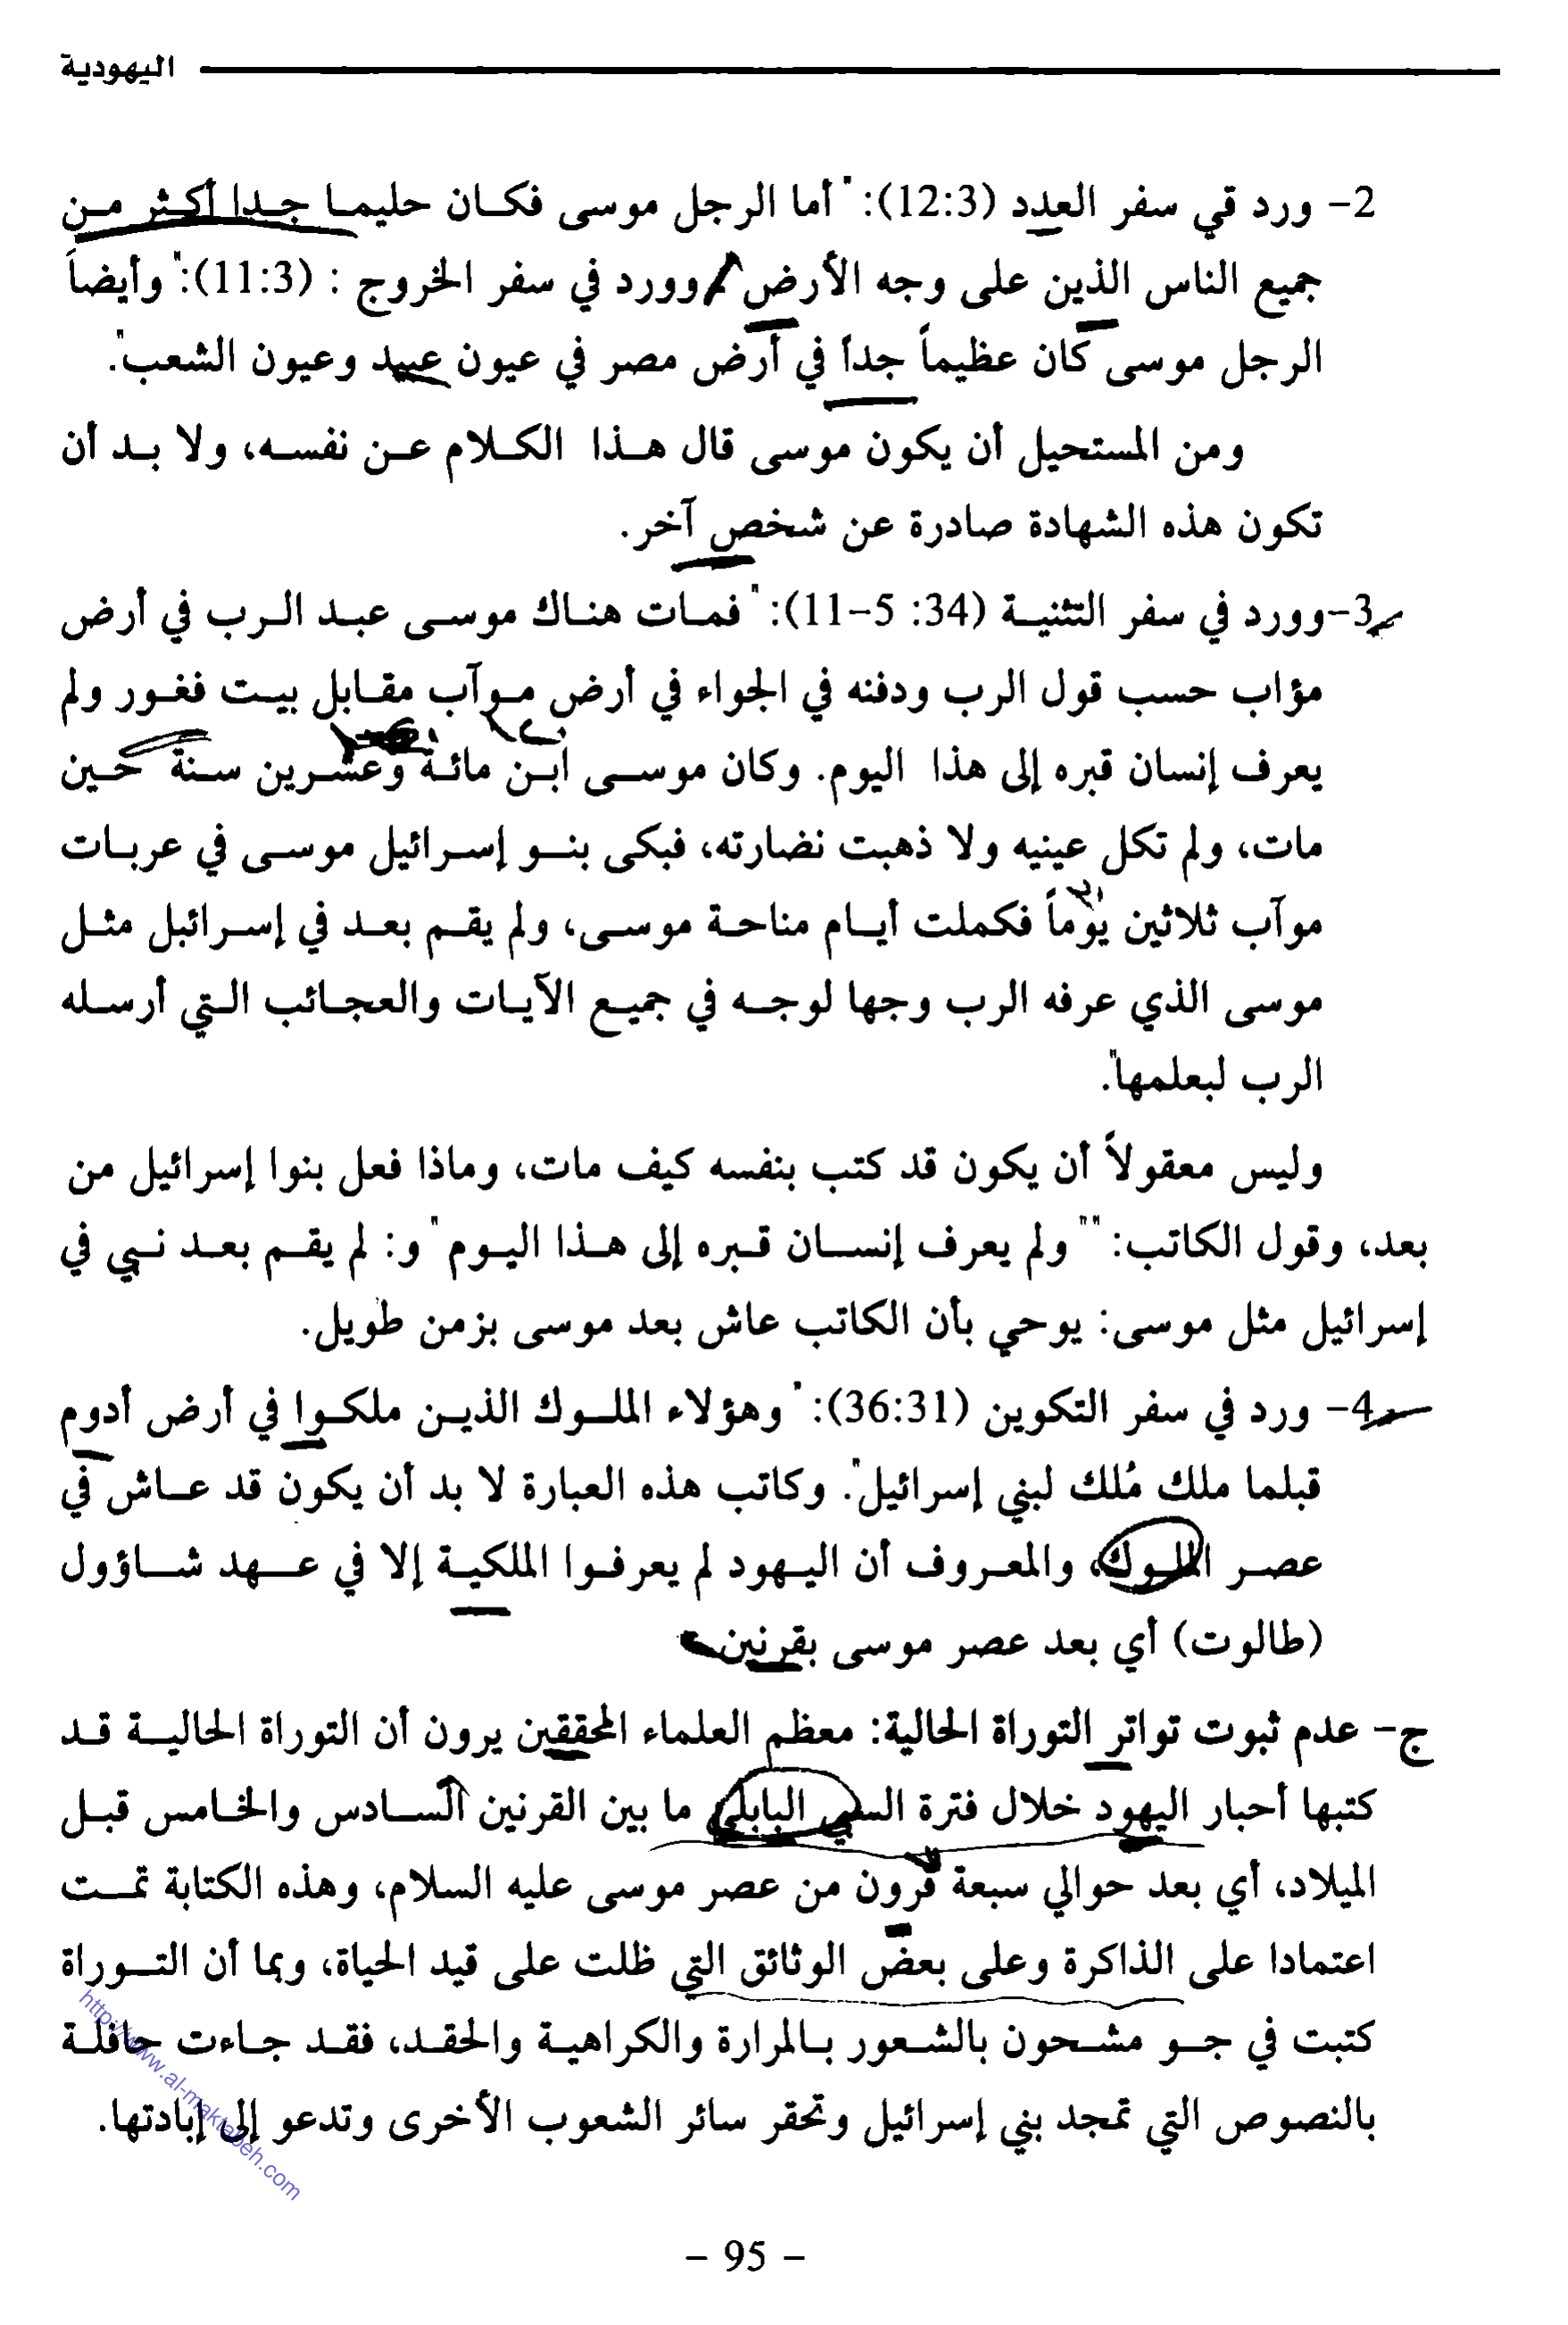 اليهودية
2- ورد قي سفر العدد (12:3): "أما الرجل موسى فكان حليما جدا أكثر من
جميع الناس الذين على وجه الأرض" وورد في سفر الخروج : (11:3): "وأيضاً
الرجل موسى كان عظيماً جداً في أرض مصر في عيون عبيد وعيون الشعب".
ومن المستحيل أن يكون موسى قال هذا الكلام عن نفسه، ولا بد أن
تكون هذه الشهادة صادرة عن شخص آخر.
3-وورد في سفر التثنية (34: 5-11): "فمات هناك موسى عبد الرب في أرض
مؤاب حسب قول الرب ودفنه في الجواء في أرض موآب مقابل بيت فغور ولم
يعرف إنسان قبره إلى هذا اليوم. وكان موسى ابن مائة وعشرين سنة حين
مات، ولم تكل عينيه ولا ذهبت نضارته، فبكى بنو إسرائيل موسى في عربات
موآب ثلاثين يوماً فكملت أيام مناحة موسى، ولم يقم بعد في إسرائبل مثل
موسى الذي عرفه الرب وجها لوجه في جميع الآيات والعجائب التي أرسله
الرب لبعلمها".
وليس معقولاً أن يكون قد كتب بنفسه كيف مات، وماذا فعل بنوا إسرائيل من
بعد، وقول الكاتب: "" ولم يعرف إنسان قبره إلى هذا اليوم" و: لم يقم بعد نبي في
إسرائيل مثل موسى: يوحي بأن الكاتب عاش بعد موسى بزمن طويل.
4- ورد في سفر التكوين (36:31): "وهؤلاء الملوك الذين ملكوا في أرض أدوم
قبلما ملك مُلك لبني إسرائيل". وكاتب هذه العبارة لا بد أن يكون قد عاش في
عصر الملوك، والمعروف أن اليهود لم يعرفوا الملكية إلا في عهد شاؤول
(طالوت) أي بعد عصر موسى بقرنين
ج- عدم ثبوت تواتر التوراة الحالية: معظم العلماء المحققين يرون أن التوراة الحالية قد
كتبها أحبار اليهود خلال فترة السبي البابلي ما بين القرنين السادس والخامس قبل
الميلاد، أي بعد حوالي سبعة قرون من عصر موسى عليه السلام، وهذه الكتابة تمت
اعتمادا على الذاكرة وعلى بعض الوثائق التي ظلت على قيد الحياة، وبما أن التوراة
كتبت في جو مشحون بالشعور بالمرارة والكراهية والحقد، فقد جاءت حافلة
بالنصوص التي تمجد بني إسرائيل وتحقر سائر الشعوب الأخرى وتدعو إلى إبادتها.
http://www.al-maktabeh.com
- 95 -